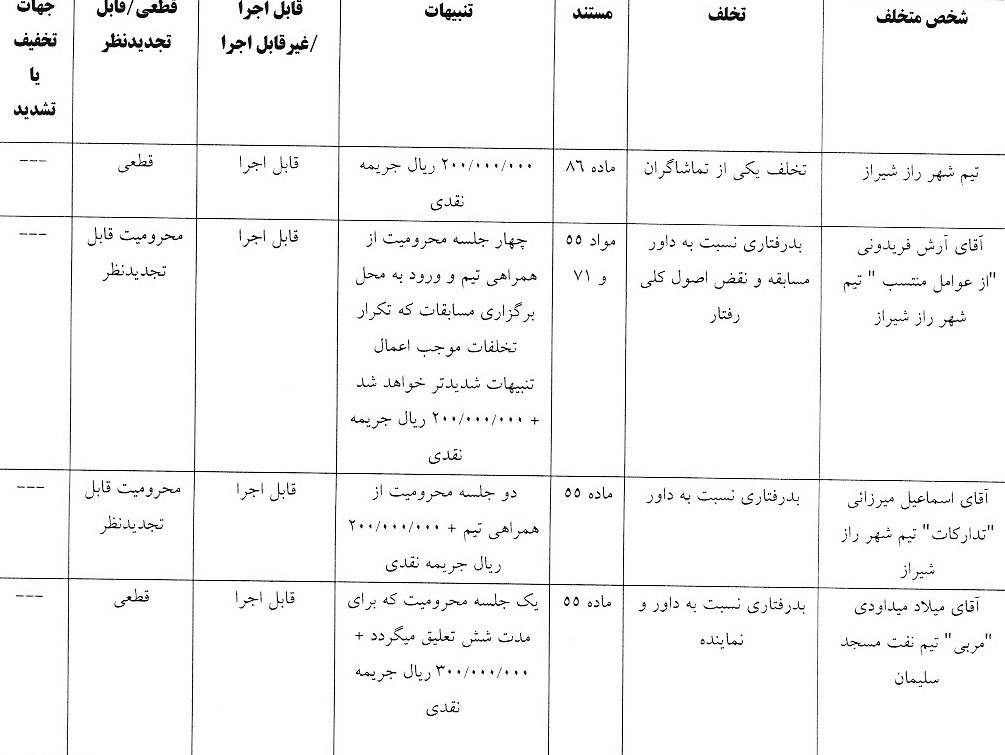 شخص متخلف
تخلف
مستند
تنبیهات
قابل اجرا
/غیرقابل اجرا
قطعی/قابل
تجدیدنظر
جهات
تخفیف
یا
تشدید
تیم شهر راز شیراز
تخلف یکی از تماشاگران
ماده ۸۶
۲۰۰/۰۰۰/۰۰۰ ریال جریمه
نقدی
قابل اجرا
قطعی
---
آقای آرش فریدونی
"از عوامل منتسب " تیم
شهر راز شیراز
بدرفتاری نسبت به داور
مسابقه و نقض اصول کلی
رفتار
مواد ۵۵
و ۷۱
چهار جلسه محرومیت از
همراهی تیم و ورود به محل
برگزاری مسابقات که تکرار
تخلفات موجب اعمال
تنبیهات شدیدتر خواهد شد
+ ۲۰۰/۰۰۰/۰۰۰ ریال جریمه
نقدی
قابل اجرا
محرومیت قابل
تجدیدنظر
---
آقای اسماعیل میرزائی
"تدارکات" تیم شهر راز
شیراز
بدرفتاری نسبت به داور
ماده ۵۵
دو جلسه محرومیت از
همراهی تیم + ۲۰۰/۰۰۰/۰۰۰
ریال جریمه نقدی
قابل اجرا
محرومیت قابل
تجدیدنظر
---
آقای میلاد میداودی
"مربی" تیم نفت مسجد
سلیمان
بدرفتاری نسبت به داور و
نماینده
ماده ۵۵
یک جلسه محرومیت که برای
مدت شش تعلیق میگردد +
۳۰۰/۰۰۰/۰۰۰ ریال جریمه
نقدی
قابل اجرا
قطعی
---